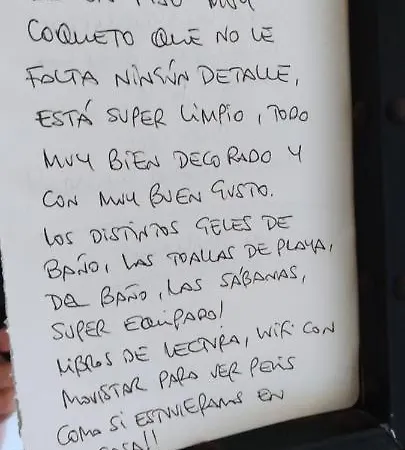 UN PISO MUY
COQUETO QUE NO LE
FALTA NINGÚN DETALLE,
ESTÁ SUPER LIMPIO, TODO
MUY BIEN DECORADO Y
CON MUY BUEN GUSTO.
LOS DISTINTOS GELES DE
BAÑO, LAS TOALLAS DE PLAYA,
DEL BAÑO, LAS SÁBANAS,
SUPER EQUIPADO!
LIBROS DE LECTURA, WIFI CON
MOVISTAR PARA VER PELIS
COMO SI ESTUVIERAMOS EN
CASA!!